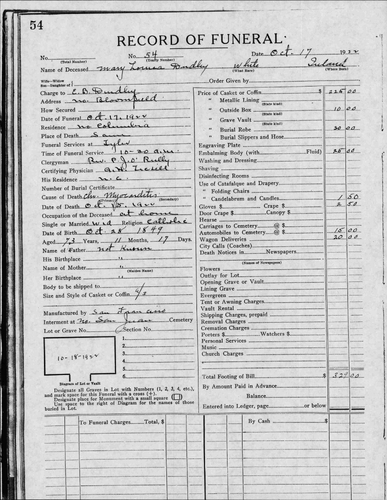 54
RECORD OF FUNERAL
No. No. 54 Date Oct. 17 1922
(Total Number) (Yearly Number)
Name of Deceased Mary Louisa Dudley White Ireland
Charge to C. D. Dudley
Address No. Bloomfield
Date of Funeral Oct. 17, 1922
Residence No Columbia
Place of Death Same
Funeral Services at
Time of Funeral Service 10-30 a.m.
Clergyman Rev. P. J. O' Reilly
Certifying Physician
His Residence N.C.
Number of Burial Certificate
Cause of Death Chr. Myocarditis
Date of Death Oct. 15, 1922
Occupation of the Deceased at home
Single or Married Wid Religion Catholic
Date of Birth Oct. 28 1849
Aged 73 Years, 11 Months, 17 Days
Name of Father Not Known
His Birthplace
Name of Mother
Her Birthplace
Body to be shipped to
Size and Style of Casket or Coffin
Manufactured by San Fran
Interment at Cemetery
Lot or Grave No. Section No.
1
2
3
4
5
6
10-18-1922
Diagram of Lot or Vault
Designate all Graves in Lot with Numbers (1, 2, 3, 4, etc.),
and mark space for this Funeral with a cross (+).
Designate place for Monument with a small square
Use space to the right of Diagram for the names of those
buried in Lot.
Order Given by
Price of Casket or Coffin $ 225 00
" Metallic Lining
" Outside Box 10 00
" Grave Vault
" Burial Robe 20 00
" Burial Slippers and Hose
Engraving Plate
Embalming Body (with Fluid) 25 00
Washing and Dressing
Shaving
Disinfecting Rooms
Use of Catafalque and Drapery
" Folding Chairs
" Candelabrum and Candles 1 50
Gloves $ Crape $ 2 50
Door Crape $ Canopy $
Hearse
Carriages to Cemetery @ $
Automobiles to Cemetery @ $ 15 00
Wagon Deliveries 20 00
City Calls (Coaches)
Death Notices in Newspapers
Flowers
Outlay for Lot
Opening Grave or Vault
Lining Grave
Evergreen
Tent or Awning Charges
Vault Rental
Shipping Charges, prepaid
Removal Charges
Cremation Charges
Porters $ Watchers $
Personal Services
Music
Church Charges
Total Footing of Bill $
By Amount Paid in Advance
Balance
Entered into Ledger, page or below
To Funeral Charges By Cash